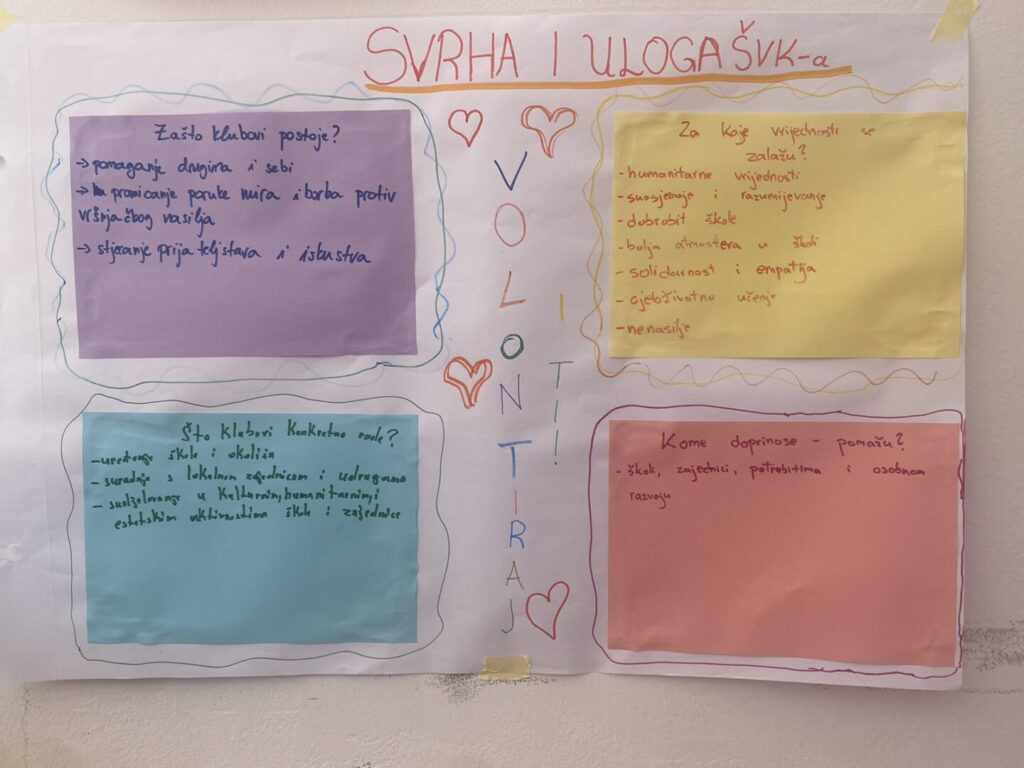 SVRHA I ULOGA ŠVK-a
Zašto klubovi postoje?
→ pomaganje drugima i sebi
→ promicanje poruke mira i borba protiv
vršnjačkog nasilja
→ stjecanje prijateljstava i iskustva
VOLONTIRAJ
I TI!
Za koje vrijednosti se
zalažu?
- humanitarne vrijednosti
- suosjećanje i razumijevanje
- dobrobit škole
- bolja atmosfera u školi
- solidarnost i empatija
- cjeloživotno učenje
- nenasilje
Što klubovi konkretno rade?
- uređenje škole i okoliša
- suradnja s lokalnom zajednicom i udrugama
- sudjelovanje u kulturnim, humanitarnim, i
estetskim aktivnostima škole i zajednice
Kome doprinose - pomažu?
- školi, zajednici, potrebitima i osobnom
razvoju